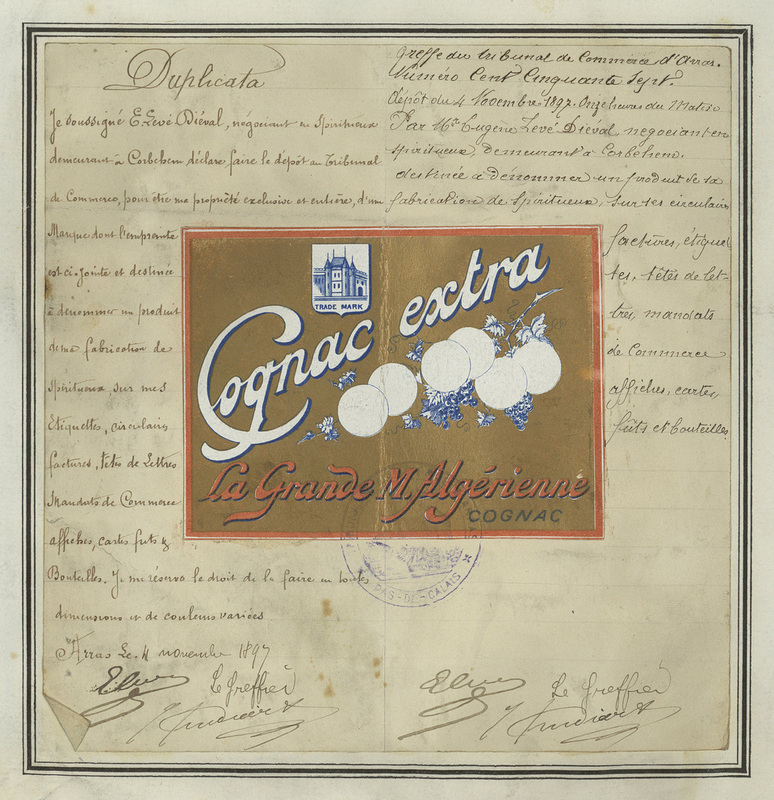 Duplicata
Je soussigné E. Levé-Diéval, négociant en Spiritueux
demeurant à Corbehem, déclare faire le dépôt au Tribunal
de Commerce, pour être ma propriété exclusive et entière, d'une
Marque dont l'empreinte
est ci-jointe et destinée
à dénommer un produit
de ma fabrication de
Spiritueux, sur mes
Etiquettes, circulaires
factures, têtes de Lettres
Mandats de Commerce
affiches, cartes, futs &
Bouteilles. Je me réserve le droit de la faire en toutes
dimensions et de couleurs variées
Arras Le 4 novembre 1897
Le Greffier
Greffe du tribunal de Commerce d'Arras.
Numéro Cent Cinquante Sept.
Dépôt du 4 Novembre 1897. Onze heures du Matin
Par Mr Eugène Levé Diéval, négociant en
spiritueux, demeurant à Corbehem.
destinée à dénommer un produit de sa
fabrication de Spiritueux, sur ses circulaires
factures, étiquet
tes, têtes de let-
tres, mandats
de Commerce
affiches, cartes,
fûts et bouteilles.
Le Greffier
TRADE MARK
Cognac extra
La Grande M. Algérienne
COGNAC
PAS-DE-CALAIS